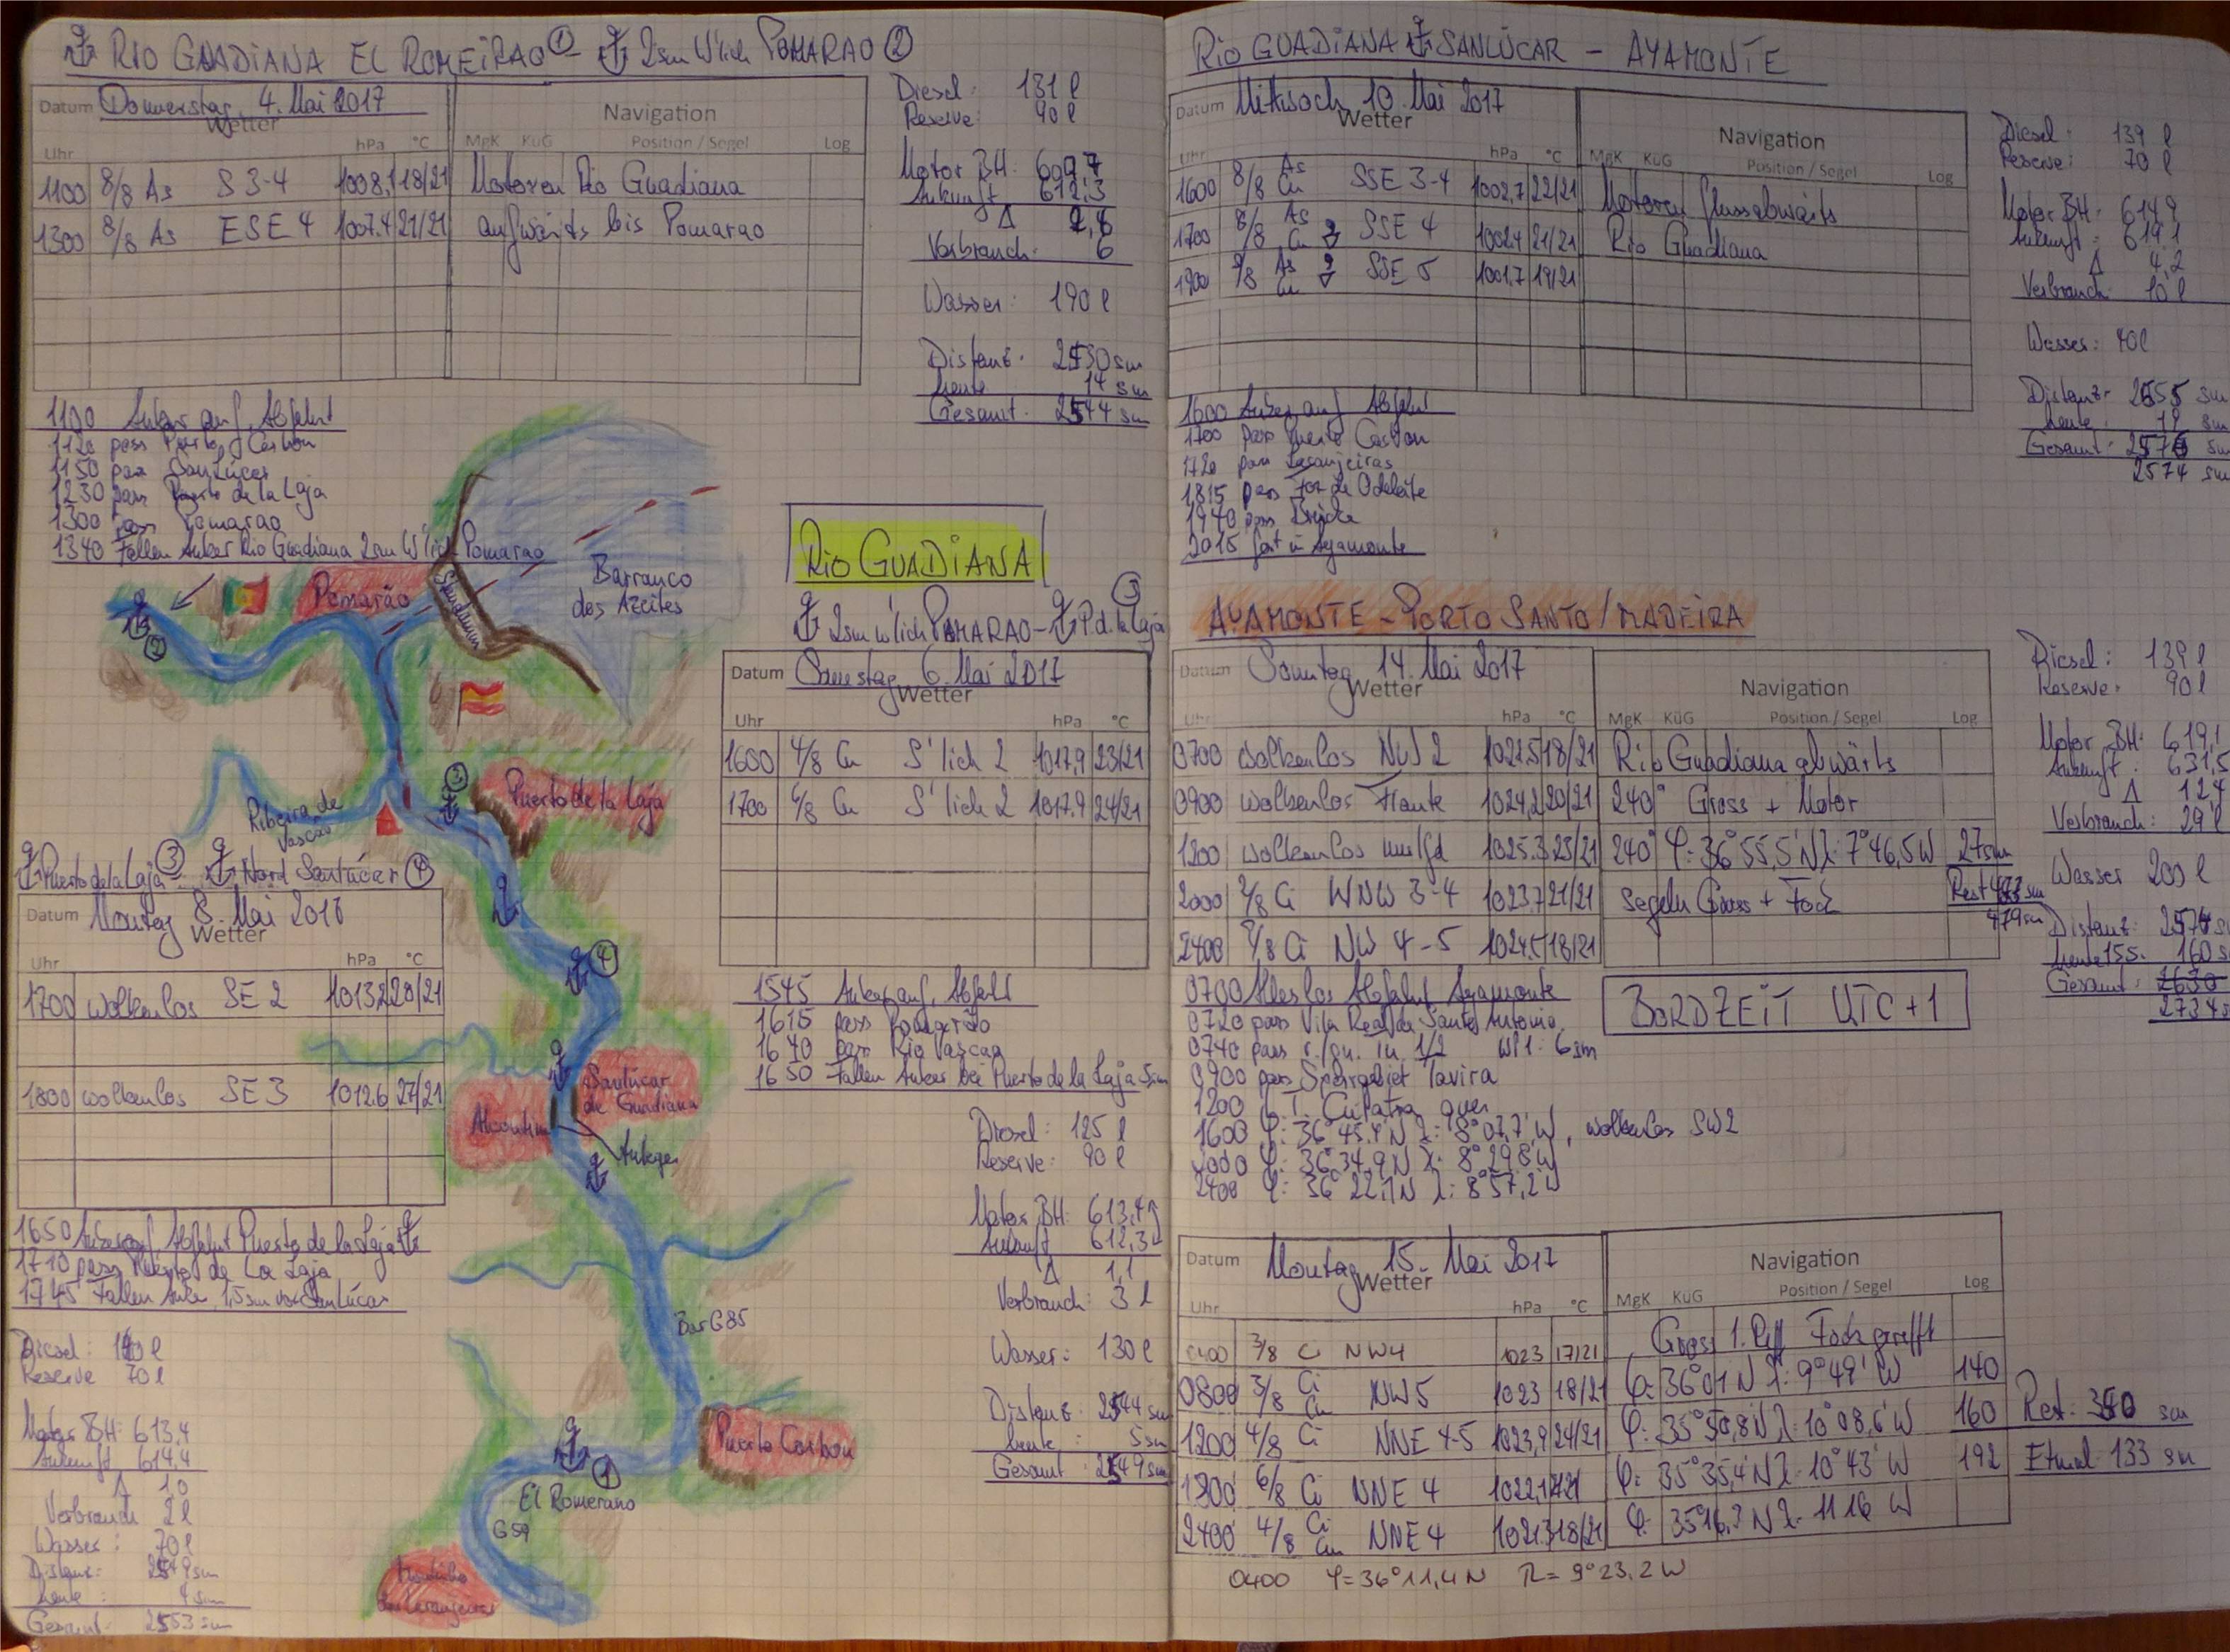 ⚓ RIO GUADIANA EL ROMEIRAO ① - ⚓ 2sm W'lich POMARAO ②
Datum Donnerstag, 4. Mai 2017
Wetter
Navigation
Uhr hPa °C MgK KüG Position / Segel Log
1100 8/8 As S 3-4 1008,1 18/21 Motoren Rio Guadiana
1300 8/8 As ESE 4 1007.4 21/21 aufwärts bis Pomarao
Diesel: 131 l
Reserve: 90 l
Motor BH: 609,7
Ankunft 612,3
Δ 2,6
Verbrauch: 6
Wasser: 190 l
Distanz: 2530 sm
heute 14 sm
Gesamt: 2544 sm
1100 Anker auf, Abfahrt
1120 pass Puerto Carbon
1150 pass SanLúcar
1230 pass Puerto de la Laja
1300 pass Pomarao
1340 Fallen Anker Rio Guadiana 2sm W'lich Pomarao
Pomarão
Staudamm
Barranco
dos Azeites
②
③
Puerto de la Laja
Ribeira de
Vascão
④
Sanlúcar
de Guadiana
Alcoutim
Anleger
Bar G85
Puerto Carbon
①
El Romerano
G59
RIO GUADIANA
⚓ 2sm w'lich POMARAO - ⚓ P.d. la Laja ③
Datum Samstag 6. Mai 2017
Wetter
Uhr hPa °C
1600 4/8 Cu S'lich 2 1017,9 23/21
1700 6/8 Cu S'lich 2 1017.9 24/21
1545 Anker auf, Abfahrt
1615 pass Pomarão
1640 pass Rio Vascao
1650 Fallen Anker bei Puerto de la Laja 5sm
Diesel: 125 l
Reserve: 90 l
Motor BH: 613,4
Ankunft 612,3
Δ 1,1
Verbrauch: 3 l
Wasser: 130 l
Distanz: 2544 sm
heute: 5 sm
Gesamt: 2549 sm
⚓ Puerto de la Laja ③ - ⚓ Nord Sanlúcar ④
Datum Montag 8. Mai 2017
Wetter
Uhr hPa °C
1700 wolkenlos SE 2 1013,2 28/21
1800 wolkenlos SE 3 1012.6 27/21
1650 Anker auf, Abfahrt Puerto de la Laja ⚓
1710 pass Puerto de La Laja
1745 Fallen Anker 1,5sm vor SanLúcar
Reserve 70 l
Motor BH: 613,4
Ankunft 614,4
Δ 1,0
Verbrauch 2 l
Wasser: 70 l
Distanz: 2549 sm
heute: 4 sm
Gesamt: 2553 sm
RIO GUADIANA ⚓ SANLÚCAR - AYAMONTE
Datum Mittwoch 10. Mai 2017
Wetter
Navigation
Uhr hPa °C MgK KüG Position / Segel Log
1600 8/8 As Cu SSE 3-4 1002,7 22/21 Motoren flussabwärts
1700 8/8 As Cu SSE 4 1002.4 21/21 Rio Guadiana
1900 As Cu SSE 5 1001.7 19/21
Diesel: 139 l
Reserve: 70 l
Motor BH: 614,9
Ankunft: 619,1
Δ 4,2
Verbrauch: 10 l
Wasser: 40l
Distanz: 2555 sm
heute: 19 sm
Gesamt: sm
2574 sm
1600 Anker auf, Abfahrt
1700 pass Puerto Carbon
1720 pass Laranjeiras
1815 pass Foz de Odeleite
1940 pass Brücke
2015 fest in Ayamonte
AYAMONTE - PORTO SANTO / MADEIRA
Datum Sonntag 14. Mai 2017
Wetter
Navigation
Uhr hPa °C MgK KüG Position / Segel Log
0700 wolkenlos NW 2 1021.5 18/21 Rio Guadiana abwärts
0900 wolkenlos Flaute 1024,2 20/21 240° Gross + Motor
1200 wolkenlos umlfd 1025.3 23/21 240° φ: 36°55,5'N λ: 7°46,5W 27sm
2000 2/8 Ci WNW 3-4 1023.7 21/21 Segeln Gross + Fock
2400 Ci NW 4-5 1024.5 18/21
479 sm
Diesel: 139 l
Reserve: 90 l
Motor BH: 619,1
Ankunft: 631,5
Δ 12,4
Verbrauch: 29 l
Wasser 200 l
Distanz: 2574 s
heute 155. 160 s
Gesamt: 2630
2734 s
BORDZEIT UTC +1
0700 Alles los Abfahrt Ayamonte
0720 pass Vila Real de Santo Antonio
0740 pass r./gn. Tn 1/2 WP1: 6sm
0900 pass Sperrgebiet Tavira
1200 quer
1600 φ: 36°45.4'N λ: 8°07,7'W, wolkenlos SW2
2000 φ: 36°34,9N λ: 8°29,8W
2400 φ: 36°22,1N λ: 8°57,2W
Datum Montag 15. Mai 2017
Wetter
Navigation
Uhr hPa °C MgK KüG Position / Segel Log
Gross 1. Reff Fock gerefft
0400 3/8 Ci NW4 1023 17/21
0800 3/8 Ci Cu NW5 1023 18/21 φ: 36°01'N λ: 9°49'W 140
1200 4/8 Ci NNE 4-5 1023,9 24/21 φ: 35°50,8'N λ: 10°08,6'W 160
1800 6/8 Ci NNE 4 1022,1 φ: 35°35,4'N λ: 10°43'W 192
2400 4/8 Ci Cu NNE 4 1021.3 18/21 φ: 35°16,2 N λ: 11 16 W
Rest: sm
Etmal 133 sm
0400 φ=36°11,4N λ=9°23,2W